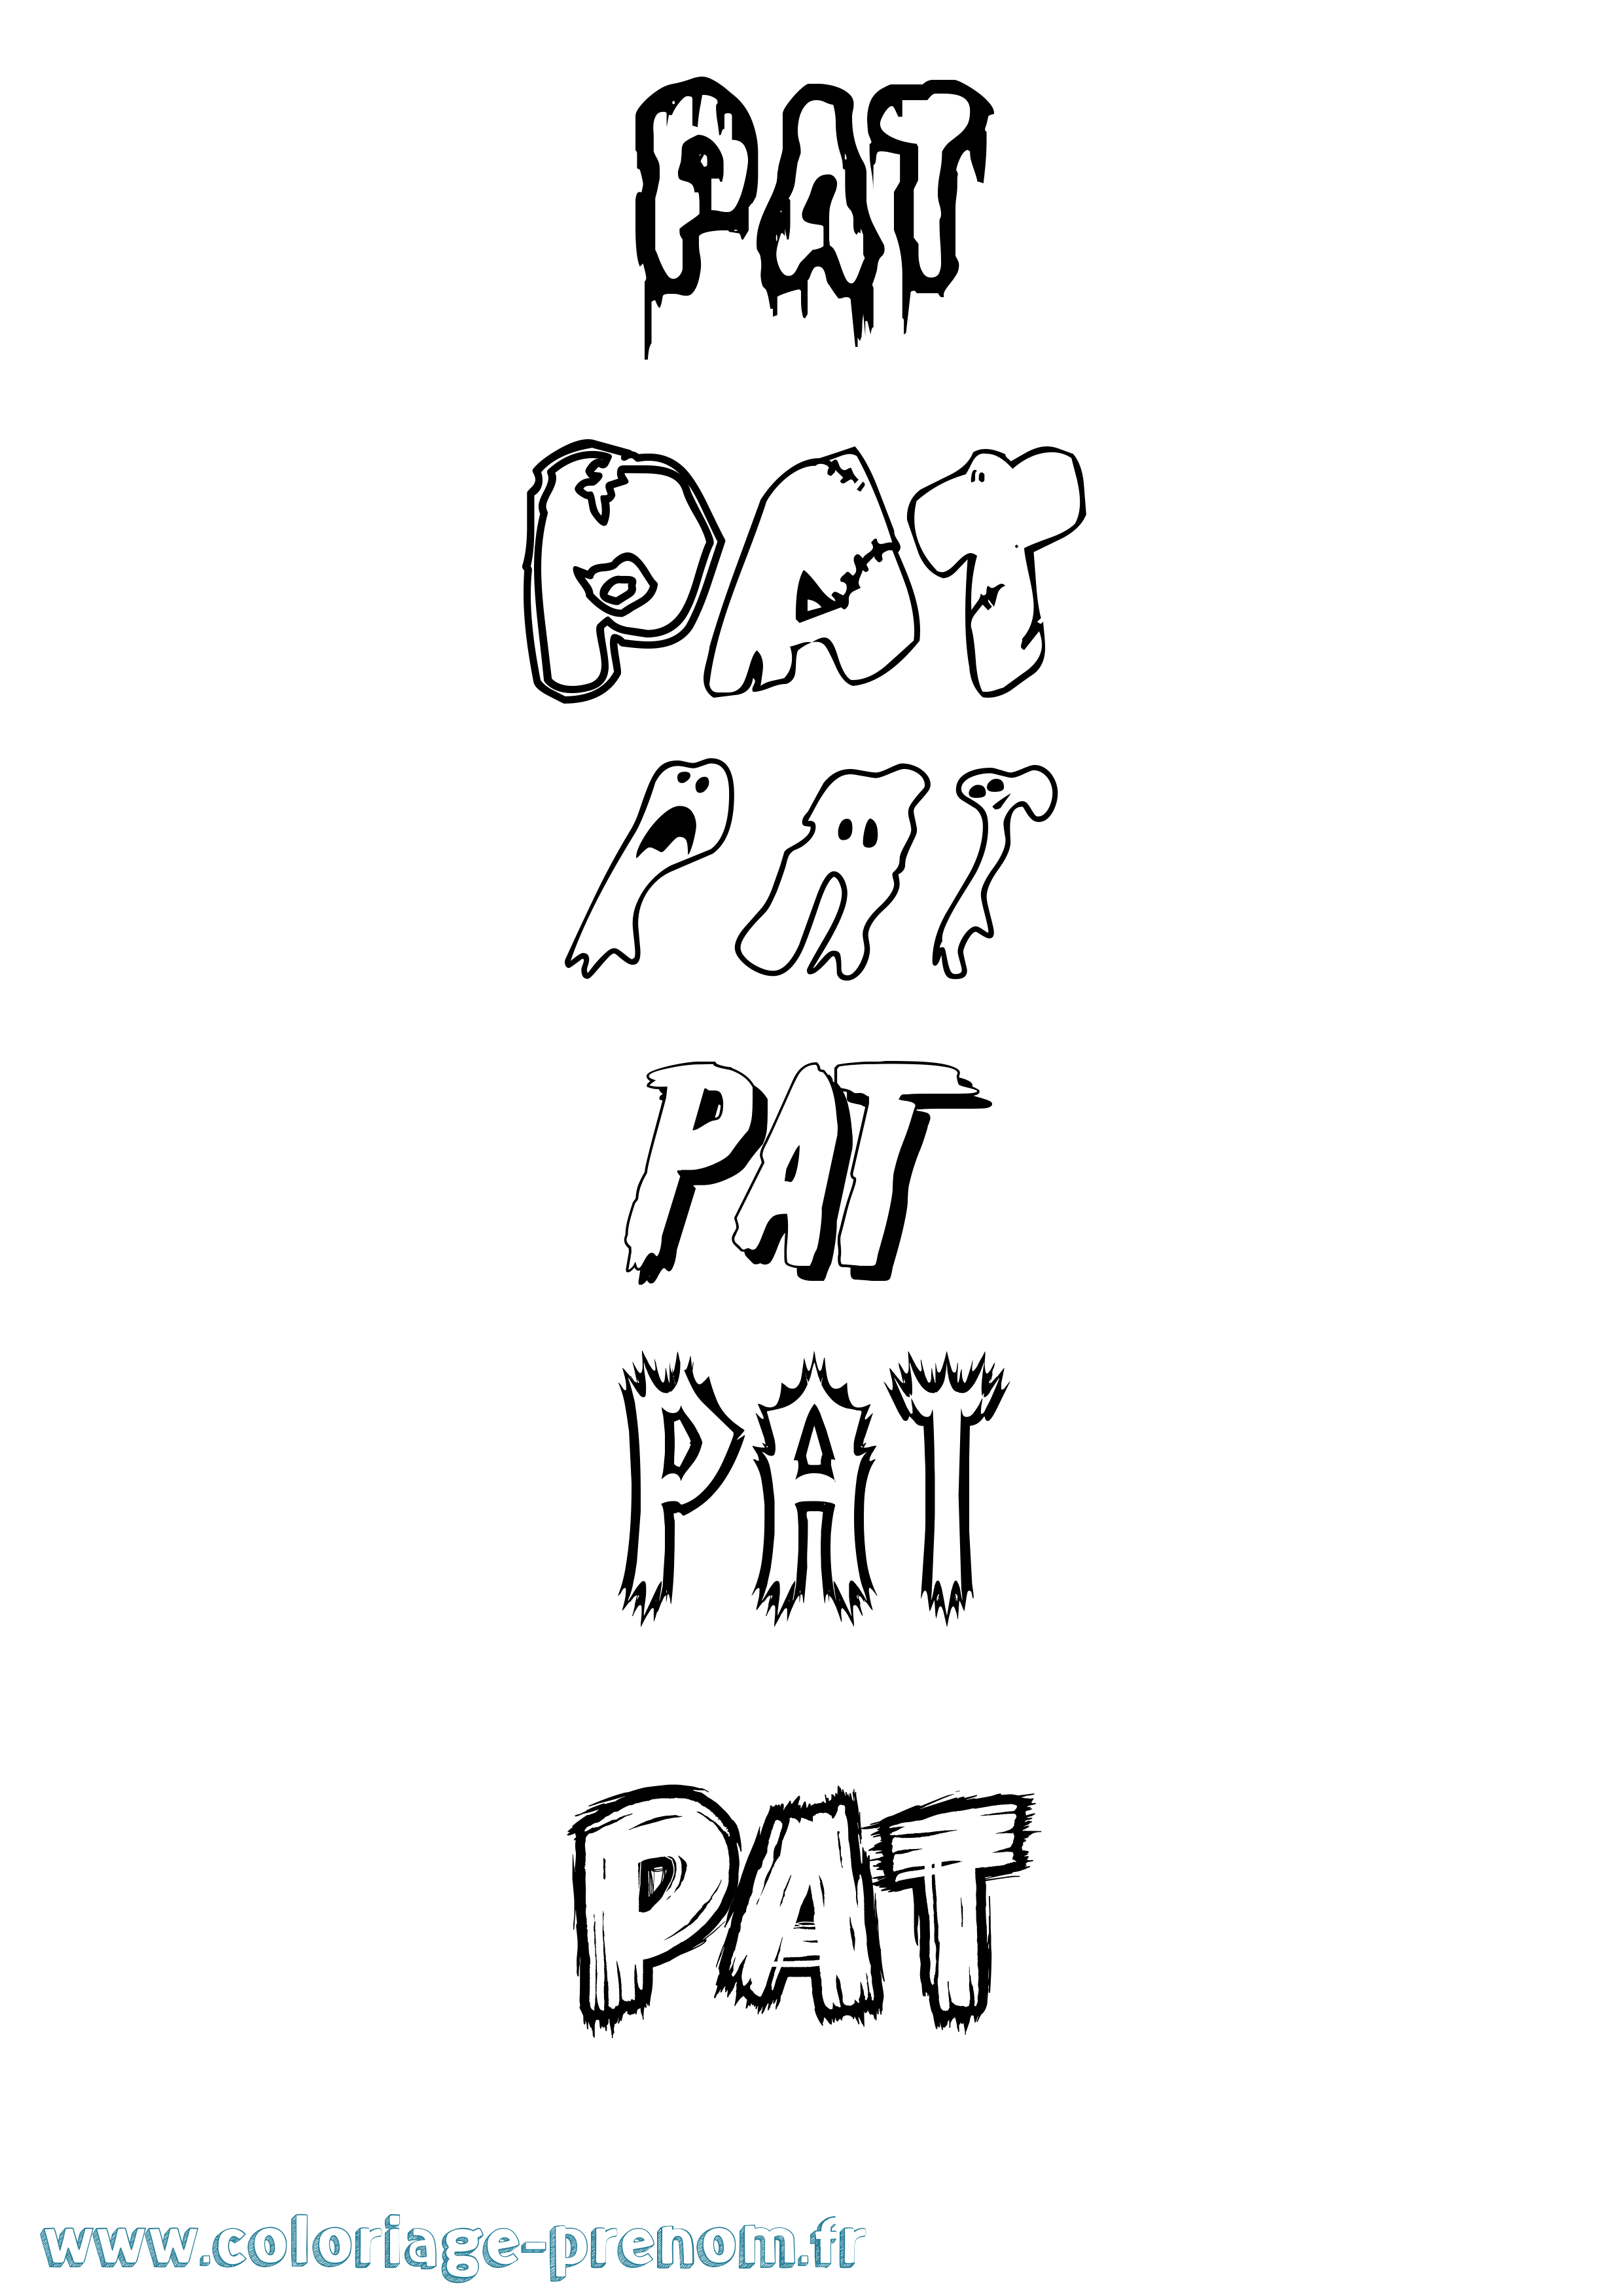 PAT
PAT
PAT
PAT
PAT
PAT
www.coloriage-prenom.fr